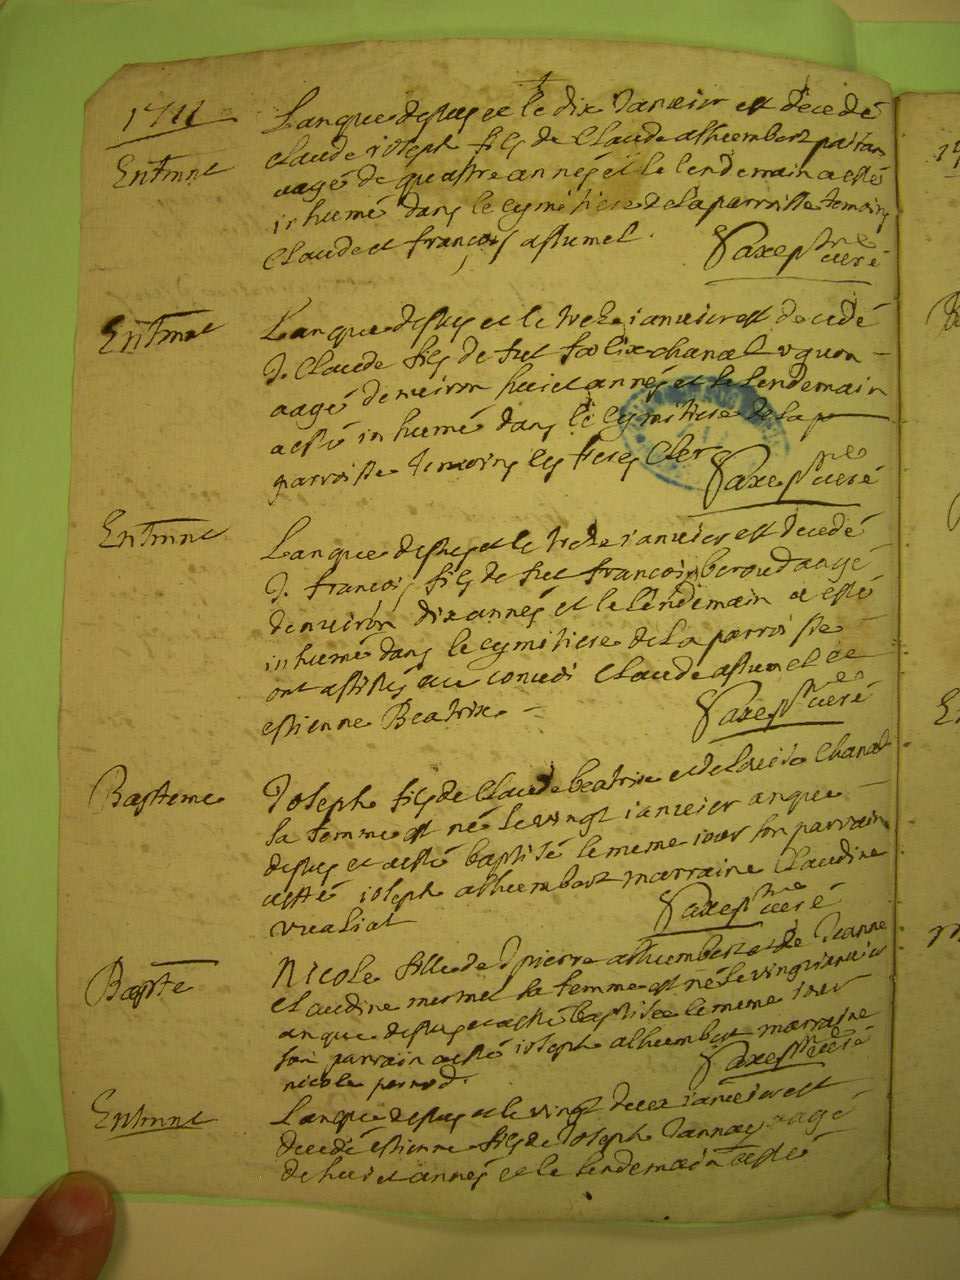 1711
Lanque dessus et le dix Janvier est decedé
Entmnt
claude ioseph fils de Claude alhumbert paisan
aagé de quattre années et le lendemain a esté
inhumé dans le cymitiere de la parroisse temoins
Claude et françois assumel.
Saxe ptre curé
Entmnt
Lanque dessus et le treze ianvier est decedé
J. Claude fils de fut foelix chanal
aagé denviron huict années et le lendemain
a esté inhumé dans le cymitiere de la p
parroisse temoins les freres Cler
Saxe ptre curé
Entmnt
Lanque dessus et le treze ianvier est decedé
J. francois fils de fut francois beroud aagé
denviron dix années et le lendemain a esté
inhumé dans le cymitiere de la parroisse
ont assistés au convoi Claude assumel et
estienne Beatrix.
Saxe ptre curé
Bapteme
Joseph fils de Claude beatrix et de Chanal
sa femme est né le vingt ianvier anque
dessus et a esté baptisé le meme iour son parrain
a esté ioseph alhumbert marraine Claudine
vualiat
Saxe ptre curé
Bapte
Nicole fille de pierre alhumbert et de Jeanne
claudine mermet sa femme est née le vingt ianvier
anque dessus et a esté baptisée le meme iour
son parrain a esté ioseph alhumbert marraine
nicole pernod.
Saxe ptre curé
Entmnt
Lanque dessus et le vingt deux ianvier est
decedé estienne fils de Joseph aagé
de huict années et le lendemain a esté